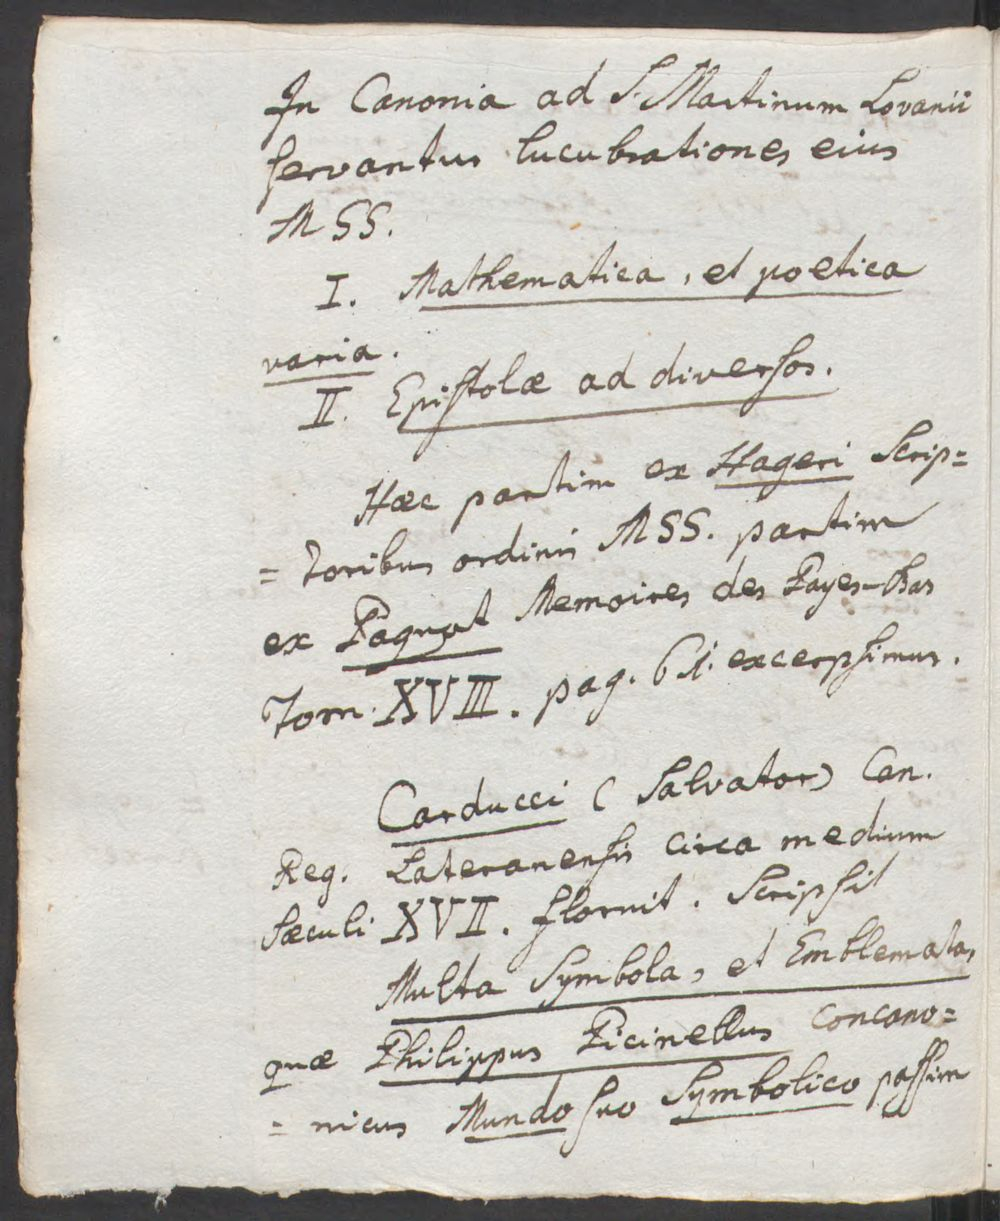 In Canonia ad S. Martinum Lovanii
servantur lucubrationes eius
MSS.
I. Mathematica, et poetica
varia.
II. Epistolæ ad diversos.
Hæc partim ex Hageri Scrip=
=toribus ordinis MSS. partim
ex Paquot Memoires des Payes-Bas
Tom. XVIII. pag. 61. excerpsimus.
Carducci (Salvator) Can.
Reg. Lateranensis circa medium
sæculi XVII. floruit. Scripsit
Multa Symbola, et Emblemata,
quæ Philippus Picinellus concano=
=nicus Mundo suo Symbolico passim